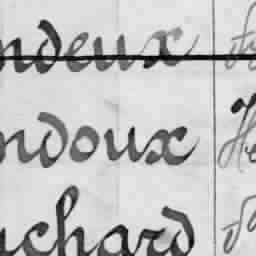 ndeux
ndoux
uchard